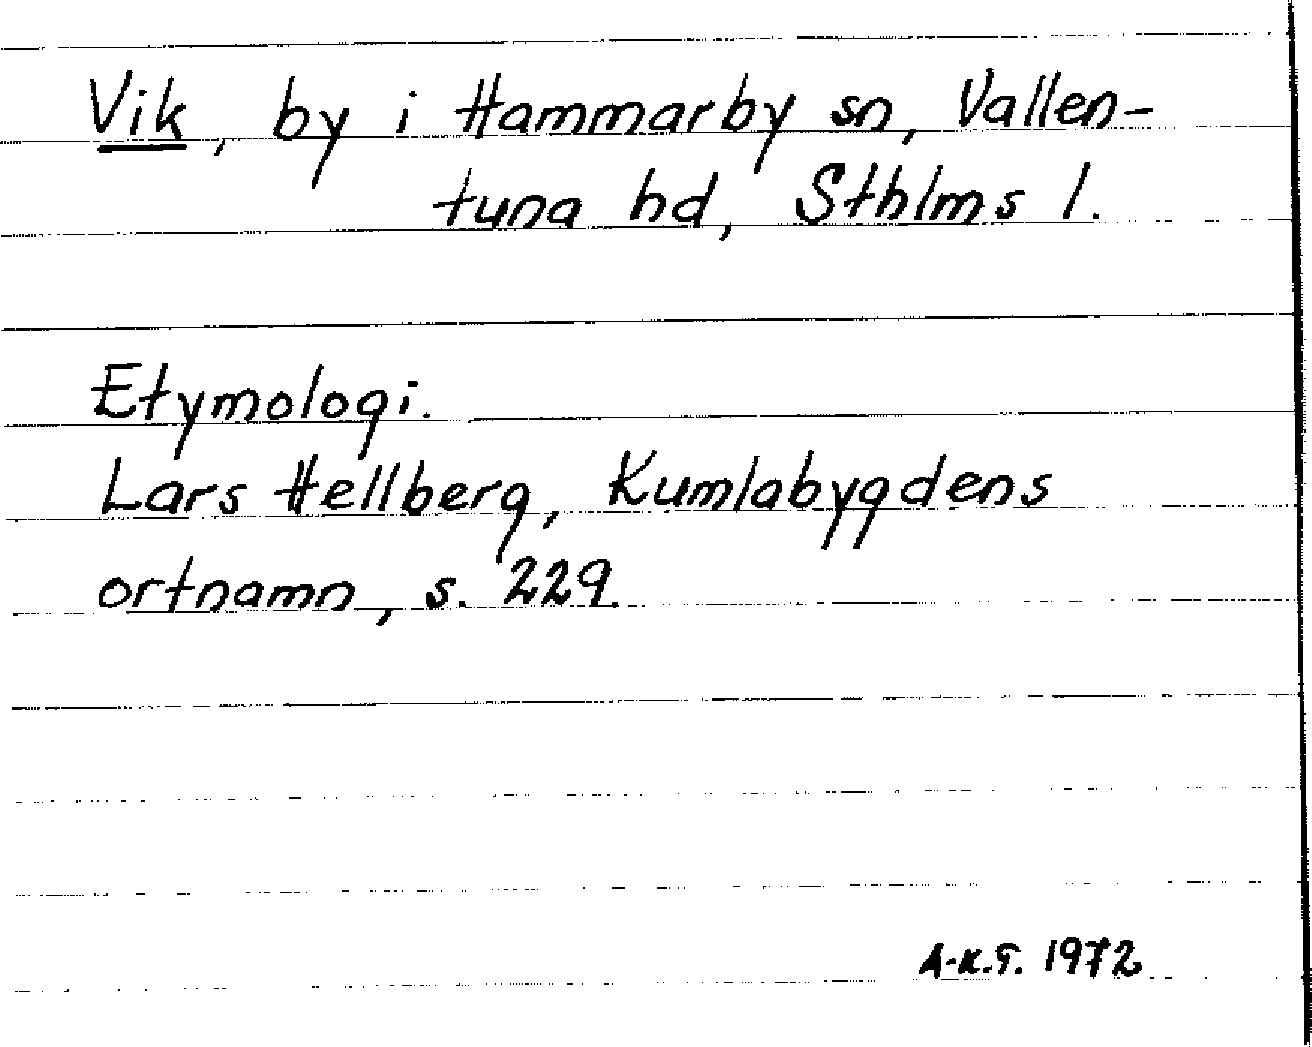 Vik, by i Hammarby sn, Vallen-
tuna hd, Sthlms l.
Etymologi.
Lars Hellberg, Kumlabygdens
ortnamn, s. 229.
A-K.T. 1972